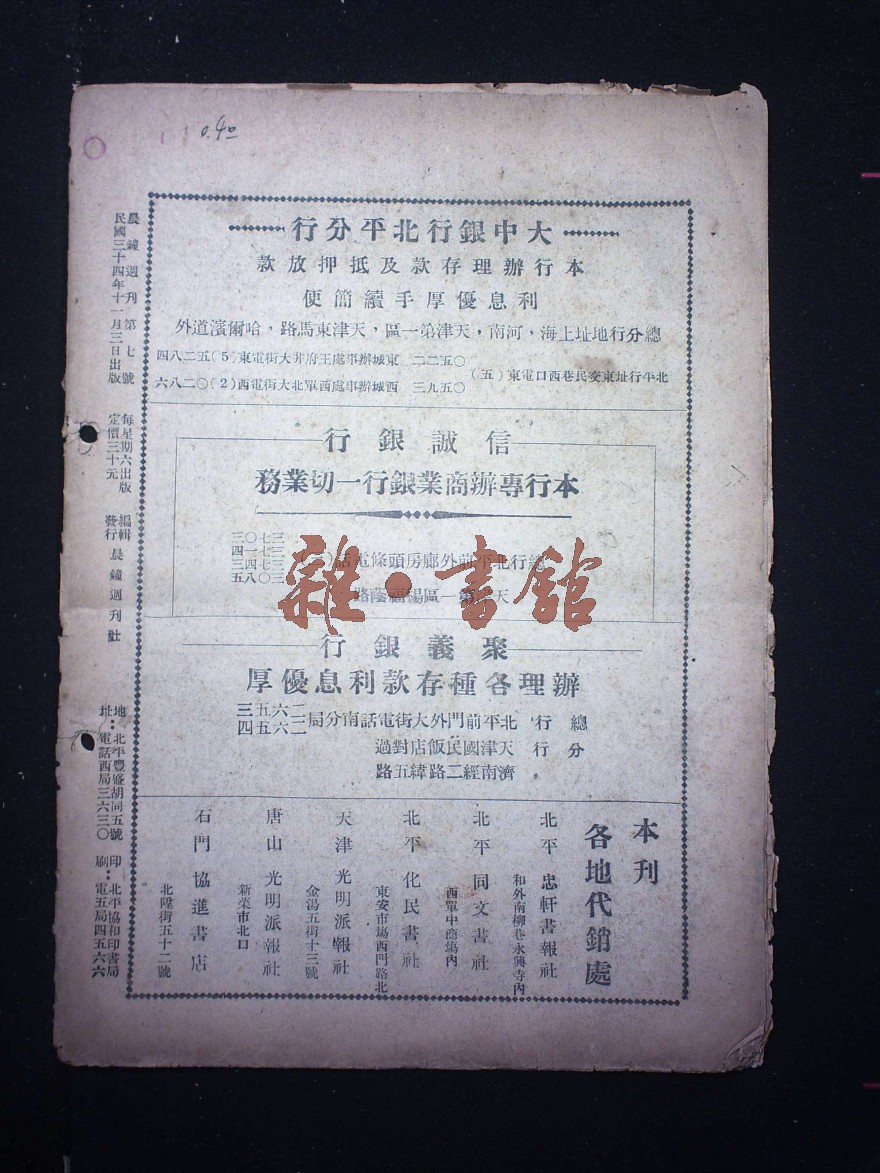 0.40
大中銀行北平分行
本行辦理存款及抵押放款
利息優厚手續簡便
總分行地址上海，河南，天津第一區，天津東馬路，哈爾濱道外
北平行址東交民巷西口電東（五）
〇五二二
〇五九三
東城辦事處王府井大街電東（5）五二八四
西城辦事處西單北大街電西（2）〇二八六
信誠銀行
本行專辦商業銀行一切業務
總行北平前外廊房頭條電話
三七〇三
三七一四
三七四三
三〇八五
天
第一區
路
聚義銀行
辦理各種存款利息優厚
總行，北平前門外大街電話南分局
二六五三
三六五四
分行　天津國民飯店對過
濟南經二路緯五路
本刊
各地代銷處
北平　忠軒書報社
和外南柳巷永興寺內
北平　同文書社
西單中商場內
北平　化民書社
東安市場西門路北
天津　光明派報社
金湯五街十三號
唐山　光明派報社
新菜市北口
石門　協進書店
北陞街五十二號
晨鐘週刊　第七號
民國三十四年十一月三日出版
每星期六出版
定價三十元
編輯
發行
晨鐘週刊社
地址：北平豐盛胡同五號
電話西局三六三〇
印刷：北平協和印書局
電五局四五六六
雜·書館